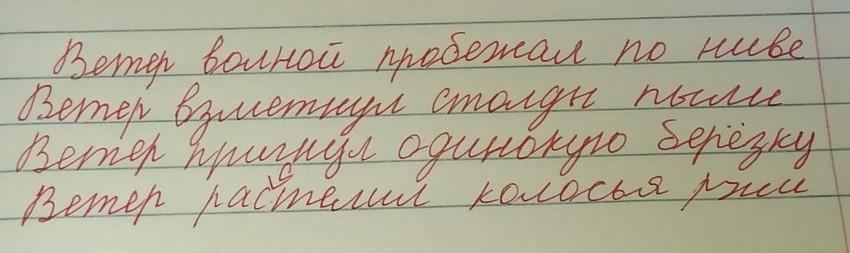 Ветер волной пробежал по ниве
Ветер взметнул столды пыли
Ветер пригнул одинокую берёзку
Ветер расстелил колосья ржи